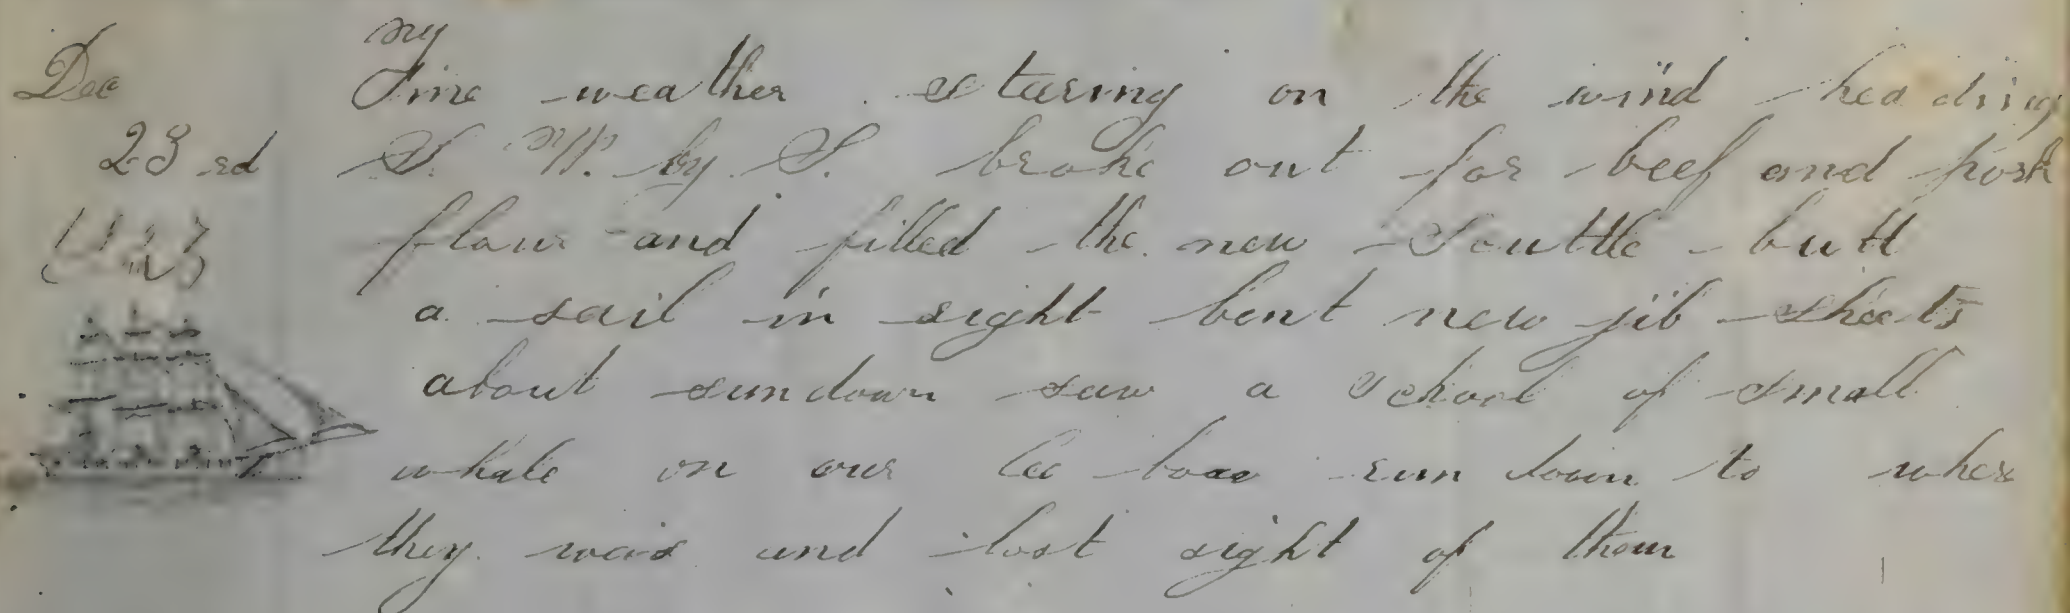 Dec
23rd
Fine weather stearing on the wind heading
S. W. by S. broke out for beef and pork
flour and filled the new Scuttle butt
a sail in sight bent new jib sheets
about sundown saw a school of small
whale on our lee bow run down to where
they was and lost sight of them